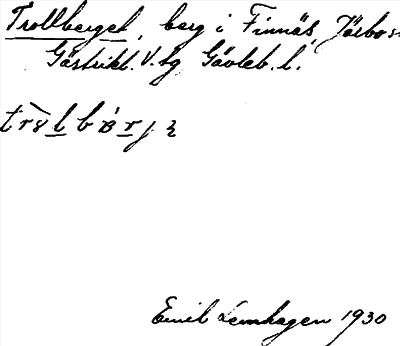 Trollberget, berg i Finnäs, Järbo s:n
Gästrikl. V. tg Gävleb. l.
Emil Lemhagen 1930